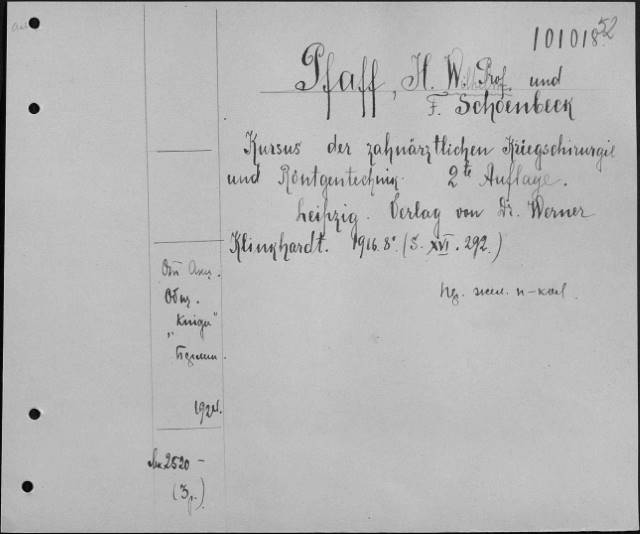 10101852
Pfaff, H. W. Prof. und
F. Schoenbeck
Kursus der zahnärztlichen Kriegschirurgie
und Röntgentechnik. 2te Auflage.
Leipzig. Verlag von Dr. Werner
Klinkhardt. 1916. 8°. (S. XVI. 292.)
Общ.
"Книга"
Берлин.
192
2520 -
(3 р.)